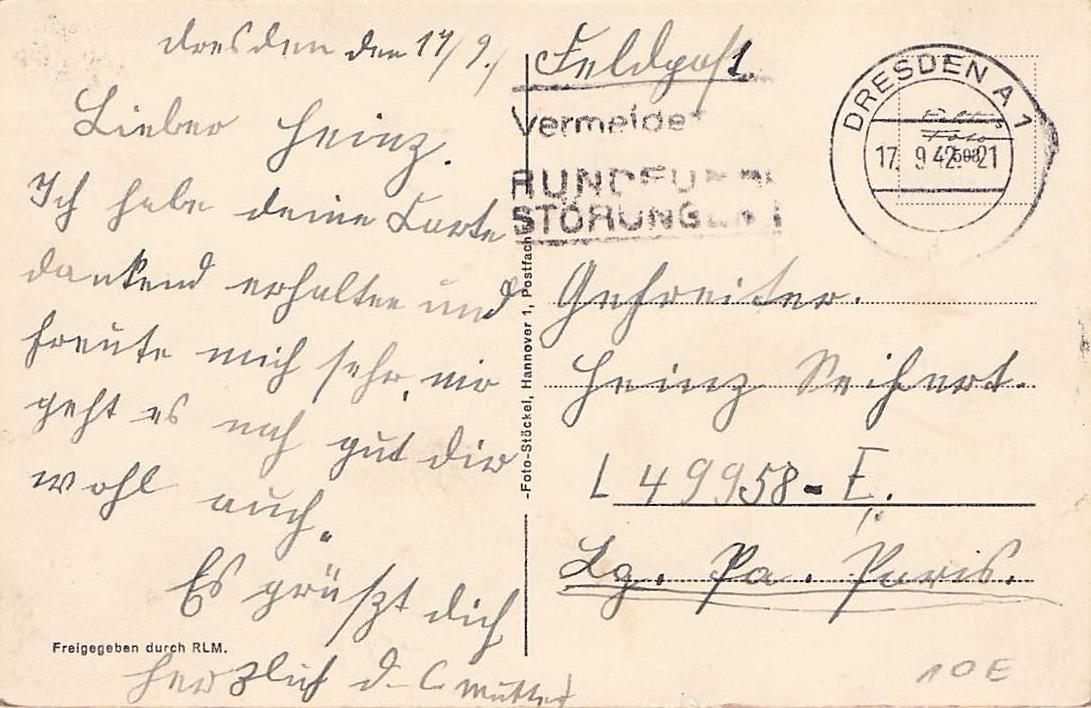 Dresden den 17/9.
Lieber Heinz.
Ich habe deine Karte
dankend erhalten und
freute mich sehr, mir
geht es noch gut dir
wohl auch.
Es grüßt dich
herzlich d. Mutter
Freigegeben durch RLM.
-Foto-Stöckel, Hannover 1, Postfach
Feldpost
Vermeidet
RUNDFUNK
STÖRUNGEN!
DRESDEN A 1
17. 9 42. 21
Gefreiter.
Heinz Seifert.
L 49958 - E.
Lg. Pa. Paris.
10E